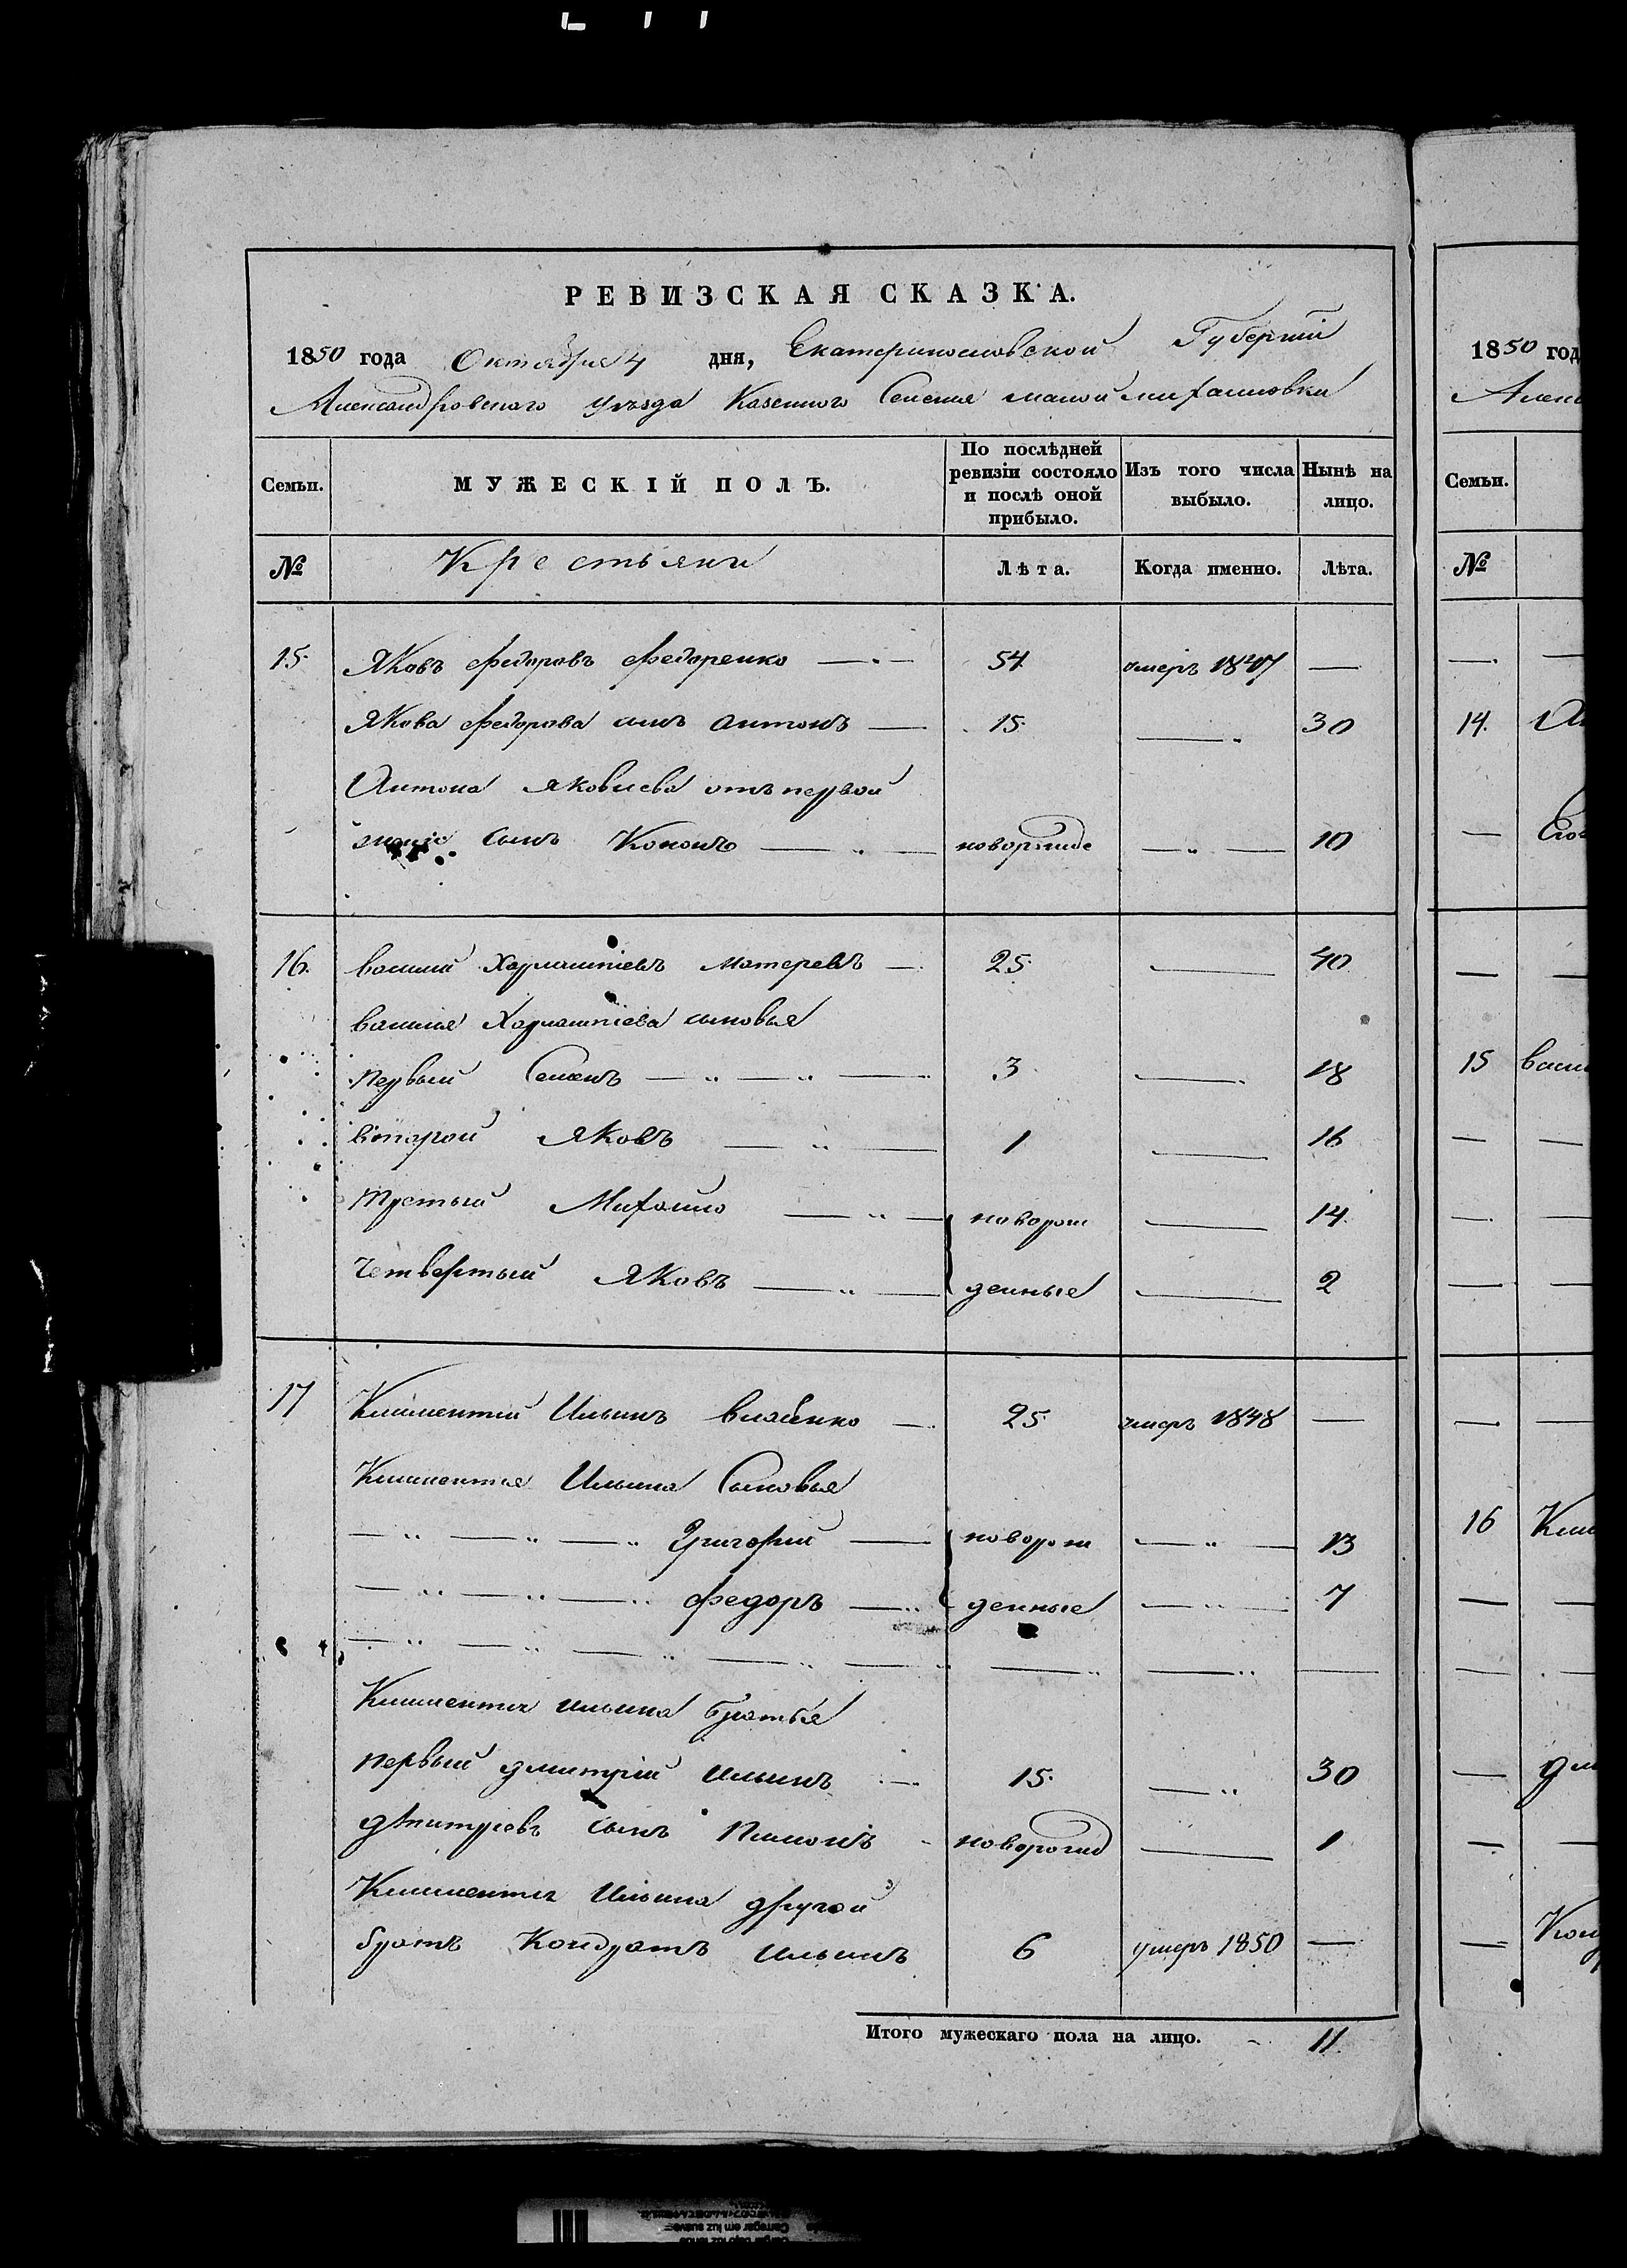 РЕВИЗСКАЯ СКАЗКА.
1850 года Октября 4 дня, Екатеринославской Губерніи
Александровского уезда Казенного Селенія малой михайловки
Семьи.
МУЖЕСКІЙ ПОЛЪ.
По послѣдней ревизіи состояло и послѣ оной прибыло.
Изъ того числа выбыло.
Нынѣ на лицо.
№
Крестьяни
Лѣта.
Когда именно.
Лѣта.
15. Яковъ Федоровъ Федоренко 54 умеръ 1847 —
Якова Федорова сынъ Антонъ — 15. — 30
Антона Яковлева отъ первой
сынъ Кононъ — новорожде — 10
16. Василий Харлампіевъ — 25 — 40
Василия Харлампіева сыновья
первый Семенъ — 3 — 18
второй Яковъ — 1 — 16
третый Михайло — новорож — 14.
Четвертый Яковъ — денные — 2
17 Климентий Ильинъ Власенко — 25 умеръ 1848 —
Климентия Ильина Сыновья
Григорий — новорож — 13
Федоръ — денные — 7
Климентия Ильина братья
первый дмитрій Ильинъ — 15. — 30
дмитріевъ сынъ — новорожд — 1
Климентия Ильина другой
братъ Кондратъ Ильинъ 6 умеръ 1850 —
Итого мужескаго пола на лицо. 11.
1850 год
Семьи.
№
14.
15 васи
16 Кли